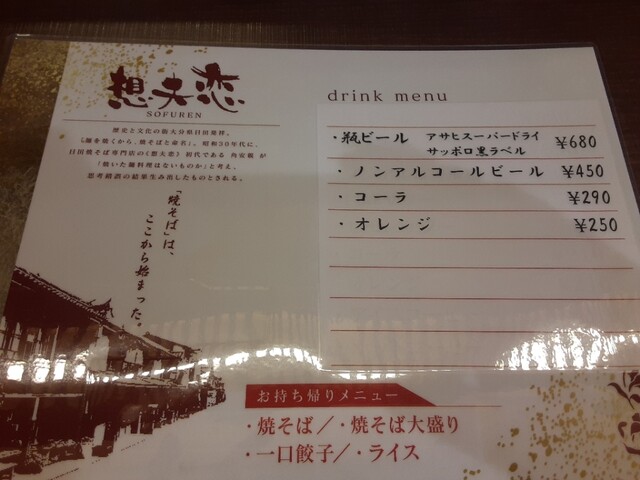 想夫恋
SOFUREN
歴史と文化の街大分県日田発祥。
「麺を焼くから、焼そばと命名」。昭和30年代に、
日田焼そば専門店の《想夫恋》初代である 角安親 が
「焼いた麺料理はないものか」と考え、
思考錯誤の結果生み出したものとされる。
「焼そば」は、
ここから始まった。
drink menu
・瓶ビール アサヒスーパードライ ¥680
サッポロ黒ラベル
・ノンアルコールビール ¥450
・コーラ ¥290
・オレンジ ¥250
お持ち帰りメニュー
・焼そば/・焼そば大盛り
・一口餃子/・ライス